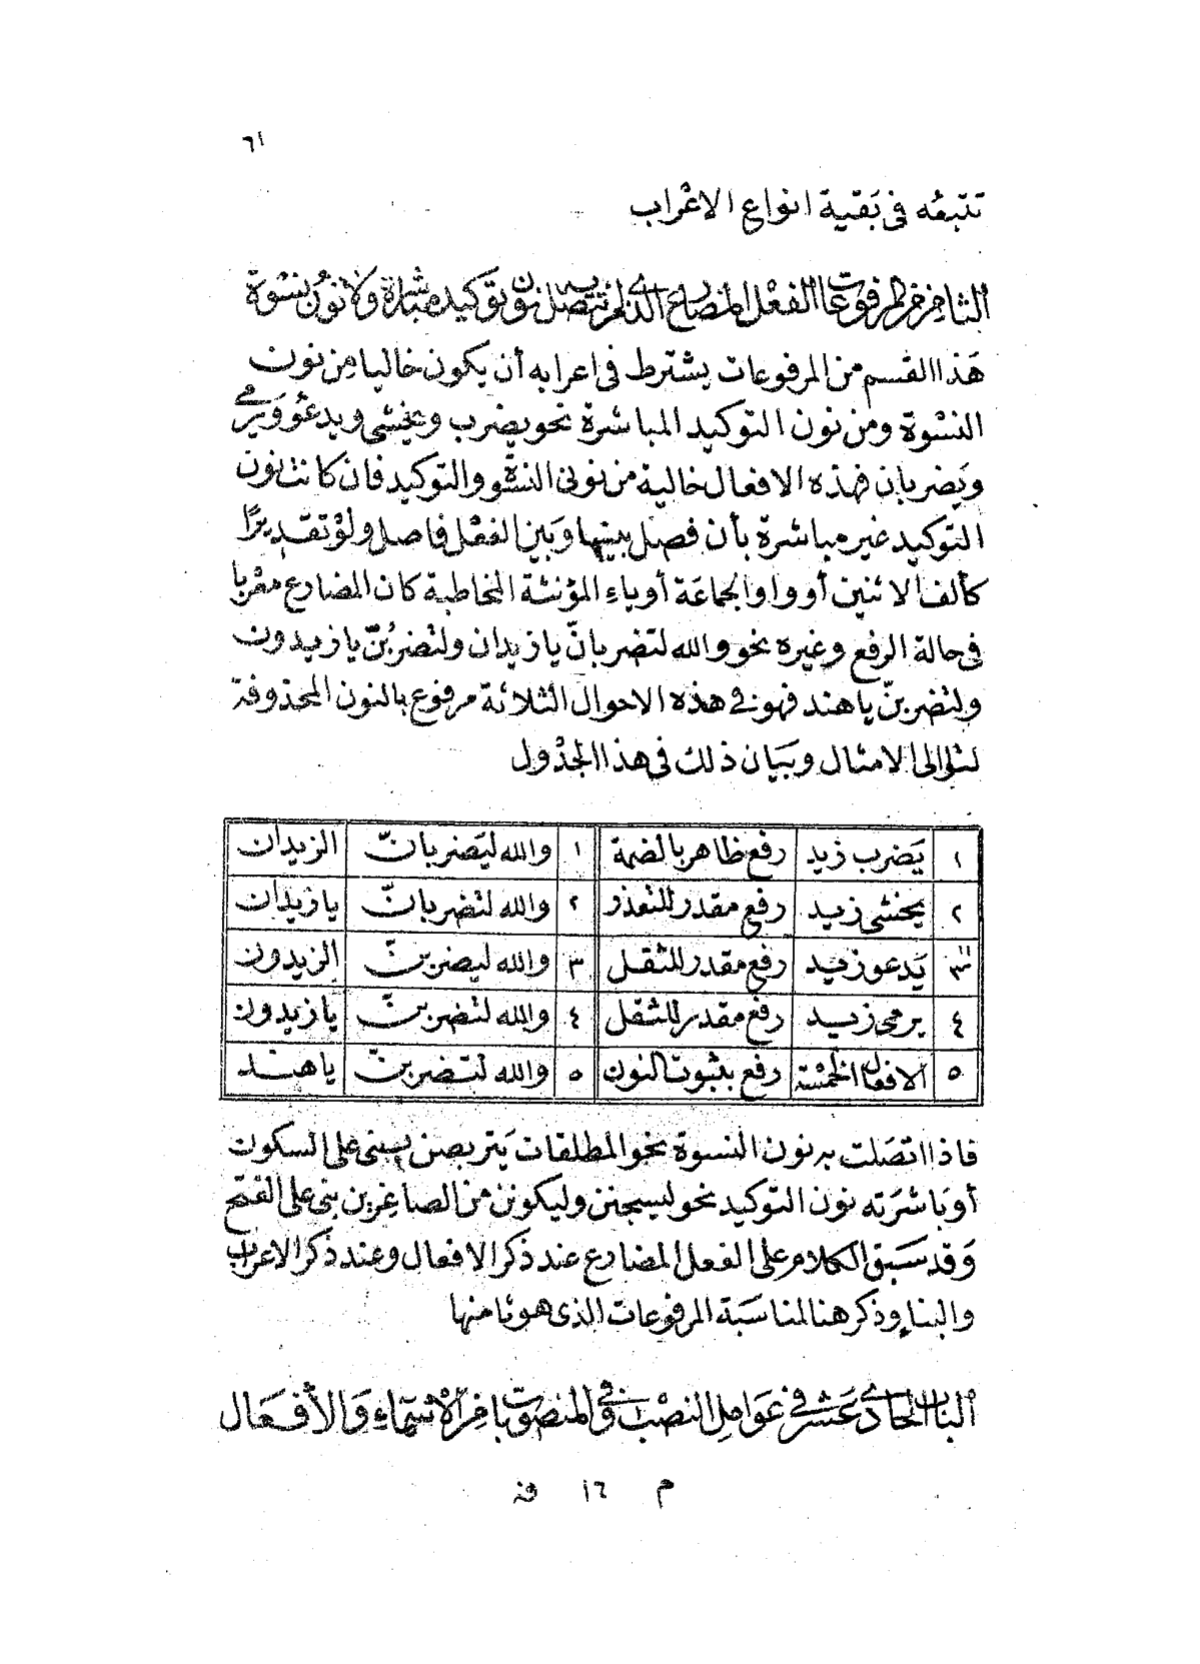 ٦١
تتبعه فى بَقية انواع الاعْراب
الثامن من المرفوعات الفعْل المضارع الذى لم تتصل به نون توكيد مباشرة ولا نُون نسْوة
هَذا القسم من المرفوعات يشترط فى اعرابه أن يكون خاليا مِن نون
النسْوة ومن نون التوكيد المباشرة نحو يضرب ويخشى ويدعو وَيرمى
وَيضربان فهذه الافعال خالية من نونى النسْوة والتوكيد فان كانت نون
التوكيد غير مباشرة بأن فصل بينها وَبين الفعْل فاصل ولوْ تقديرًا
كألف الاثنين أو واو الجماعَة أو ياء المؤنثة المخاطبة كان المضارع معْربا
فى حالة الرفع وغيره نحو والله لتضربانّ يا زيدان ولتضربُنّ يا زيدون
ولتضربنّ يا هند فهو فى هذه الاحوال الثلاثة مرفوع بالنون المحذوفة
لتوالى الامثال وبَيان ذلك فى هذا الجدْول
١ يَضرب زيد رفع ظاهر بالضمة ١ والله ليَضربانّ الزيدان
٢ يخشى زيد رفع مقدر للتعذر ٢ والله لتضربانّ يا زيدان
٣ يَدعو زيد رفع مقدر للثقل ٣ والله ليضربنّ الزيدون
٤ يرمى زيد رفع مقدر للثقل ٤ والله لتضربنّ يا زيدون
٥ الافعال الخمْسة رفع بثبوت النون ٥ والله لتضربنّ يا هند
فاذا اتصَلت به نون النسوة نحو المطلقات يَتربصن يبنى على السكون
أو بَاشرَته نون التوكيد نحو ليسجنن وليكونن من الصاغرين بنى على الفتح
وَقد سَبق الكلام على الفعل المضارع عند ذكر الافعال وعند ذكر الاعراب
والبناء وذكر هنا لمناسَبة المرفوعات الذى هو منها
البَاب الحادى عَشر فى عَوامل النصْب وفى المنصوبات من الأسْماء وَالأفعَال
م ١٦ فة